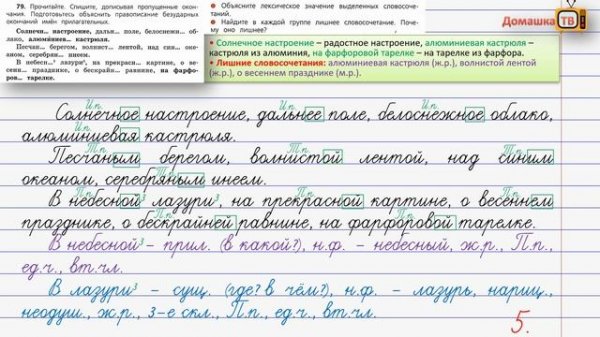 79. Прочитайте. Спишите, дописывая пропущенные окон-
чания. Подготовьтесь объяснить правописание безударных
окончаний имён прилагательных.
Солнечн.. настроение, дальн... поле, белоснежн... об-
лако, алюминиев... кастрюля.
Песчан... берегом, волнист... лентой, над син... оке-
аном, серебрян... инеем.
В небесн...³ лазури³, на прекрасн... картине, о весен-
н... празднике, о бескрайн... равнине, на фарфо-
ров... тарелке.
● Объясните лексическое значение выделенных словосоче-
таний.
● Найдите в каждой группе лишнее словосочетание. Поче-
му оно лишнее?
Домашка ТВ
• Солнечное настроение – радостное настроение, алюминиевая кастрюля –
кастрюля из алюминия, на фарфоровой тарелке – на тарелке из фарфора.
• Лишние словосочетания: алюминиевая кастрюля (ж.р.), волнистой лентой
(ж.р.), о весеннем празднике (м.р.).
И.п. И.п. И.п.
Солнечное настроение, дальнее поле, белоснежное облако,
И.п.
алюминиевая кастрюля.
Т.п. Т.п. Т.п.
Песчаным берегом, волнистой лентой, над синим
Т.п.
океаном, серебряным инеем.
П.п. П.п. П.п.
В небесной³ лазури³, на прекрасной картине, о весеннем
П.п. П.п.
празднике, о бескрайней равнине, на фарфоровой тарелке.
В небесной³ – прил. (в какой?), н.ф. – небесный, ж.р., П.п.,
ед.ч., вт.чл.
В лазури³ – сущ. (где? в чём?), н.ф. – лазурь, нариц.,
неодуш., ж.р., 3-е скл., П.п., ед.ч., вт.чл.
5.